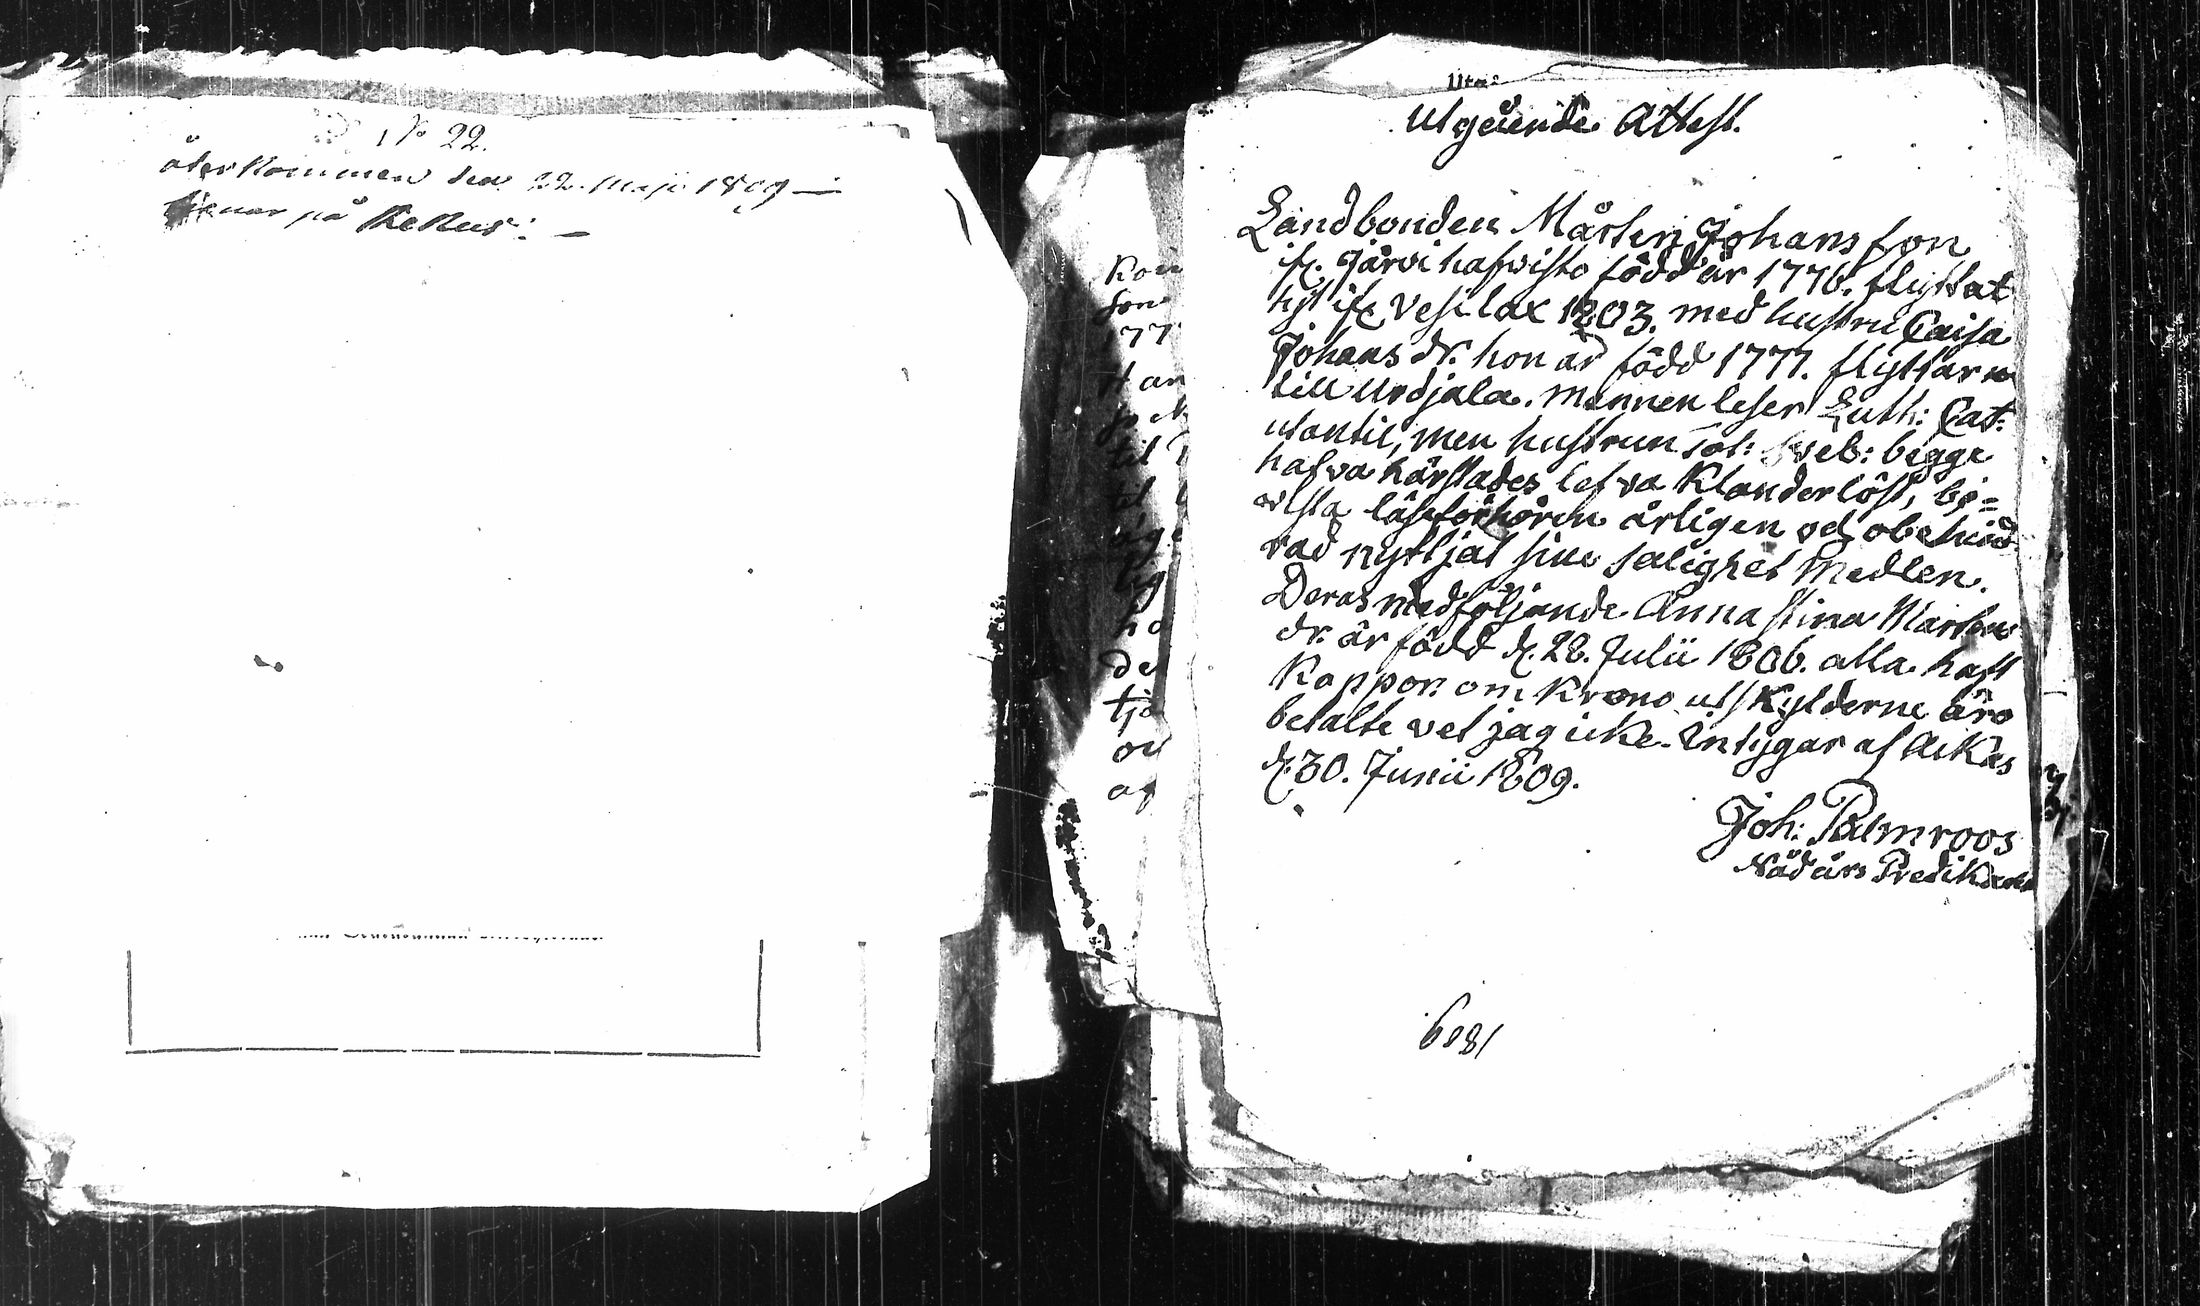 No 22.
återkommen den 22. Maji 1809 —
tienar på Kekus: —
Kon
son
77
Han
til
til
åge
lig
ha
det
tjo
och
af
Utg:
Utgående Attest.
Landbonden Mårten Johansson
ifr. Järvi hafvisto född år 1776. flyttat
hjt ifr Vesilax 1803. med hustru Caisa
Johans dr. hon är född 1777. flyttar nu
till Urdjala. Mannen leser Luth: Cat:
utantil, men hustrun tol: Sveb: begge
hafva härstädes lefva klanderlöst, bi=
vista läseförhören årligen och obehind
rad nyttjat sine salighet Medlen.
Deras medföljande Anna Stina Mårtens
dr. är född d. 28. Julii 1806. alla haft
Koppor. om Krono utskylderne äro
betalte vet jag icke. Intygar af Ackas
d. 30. Junii 1809.
Joh: Palmroos
Nådårs Predikant
1809